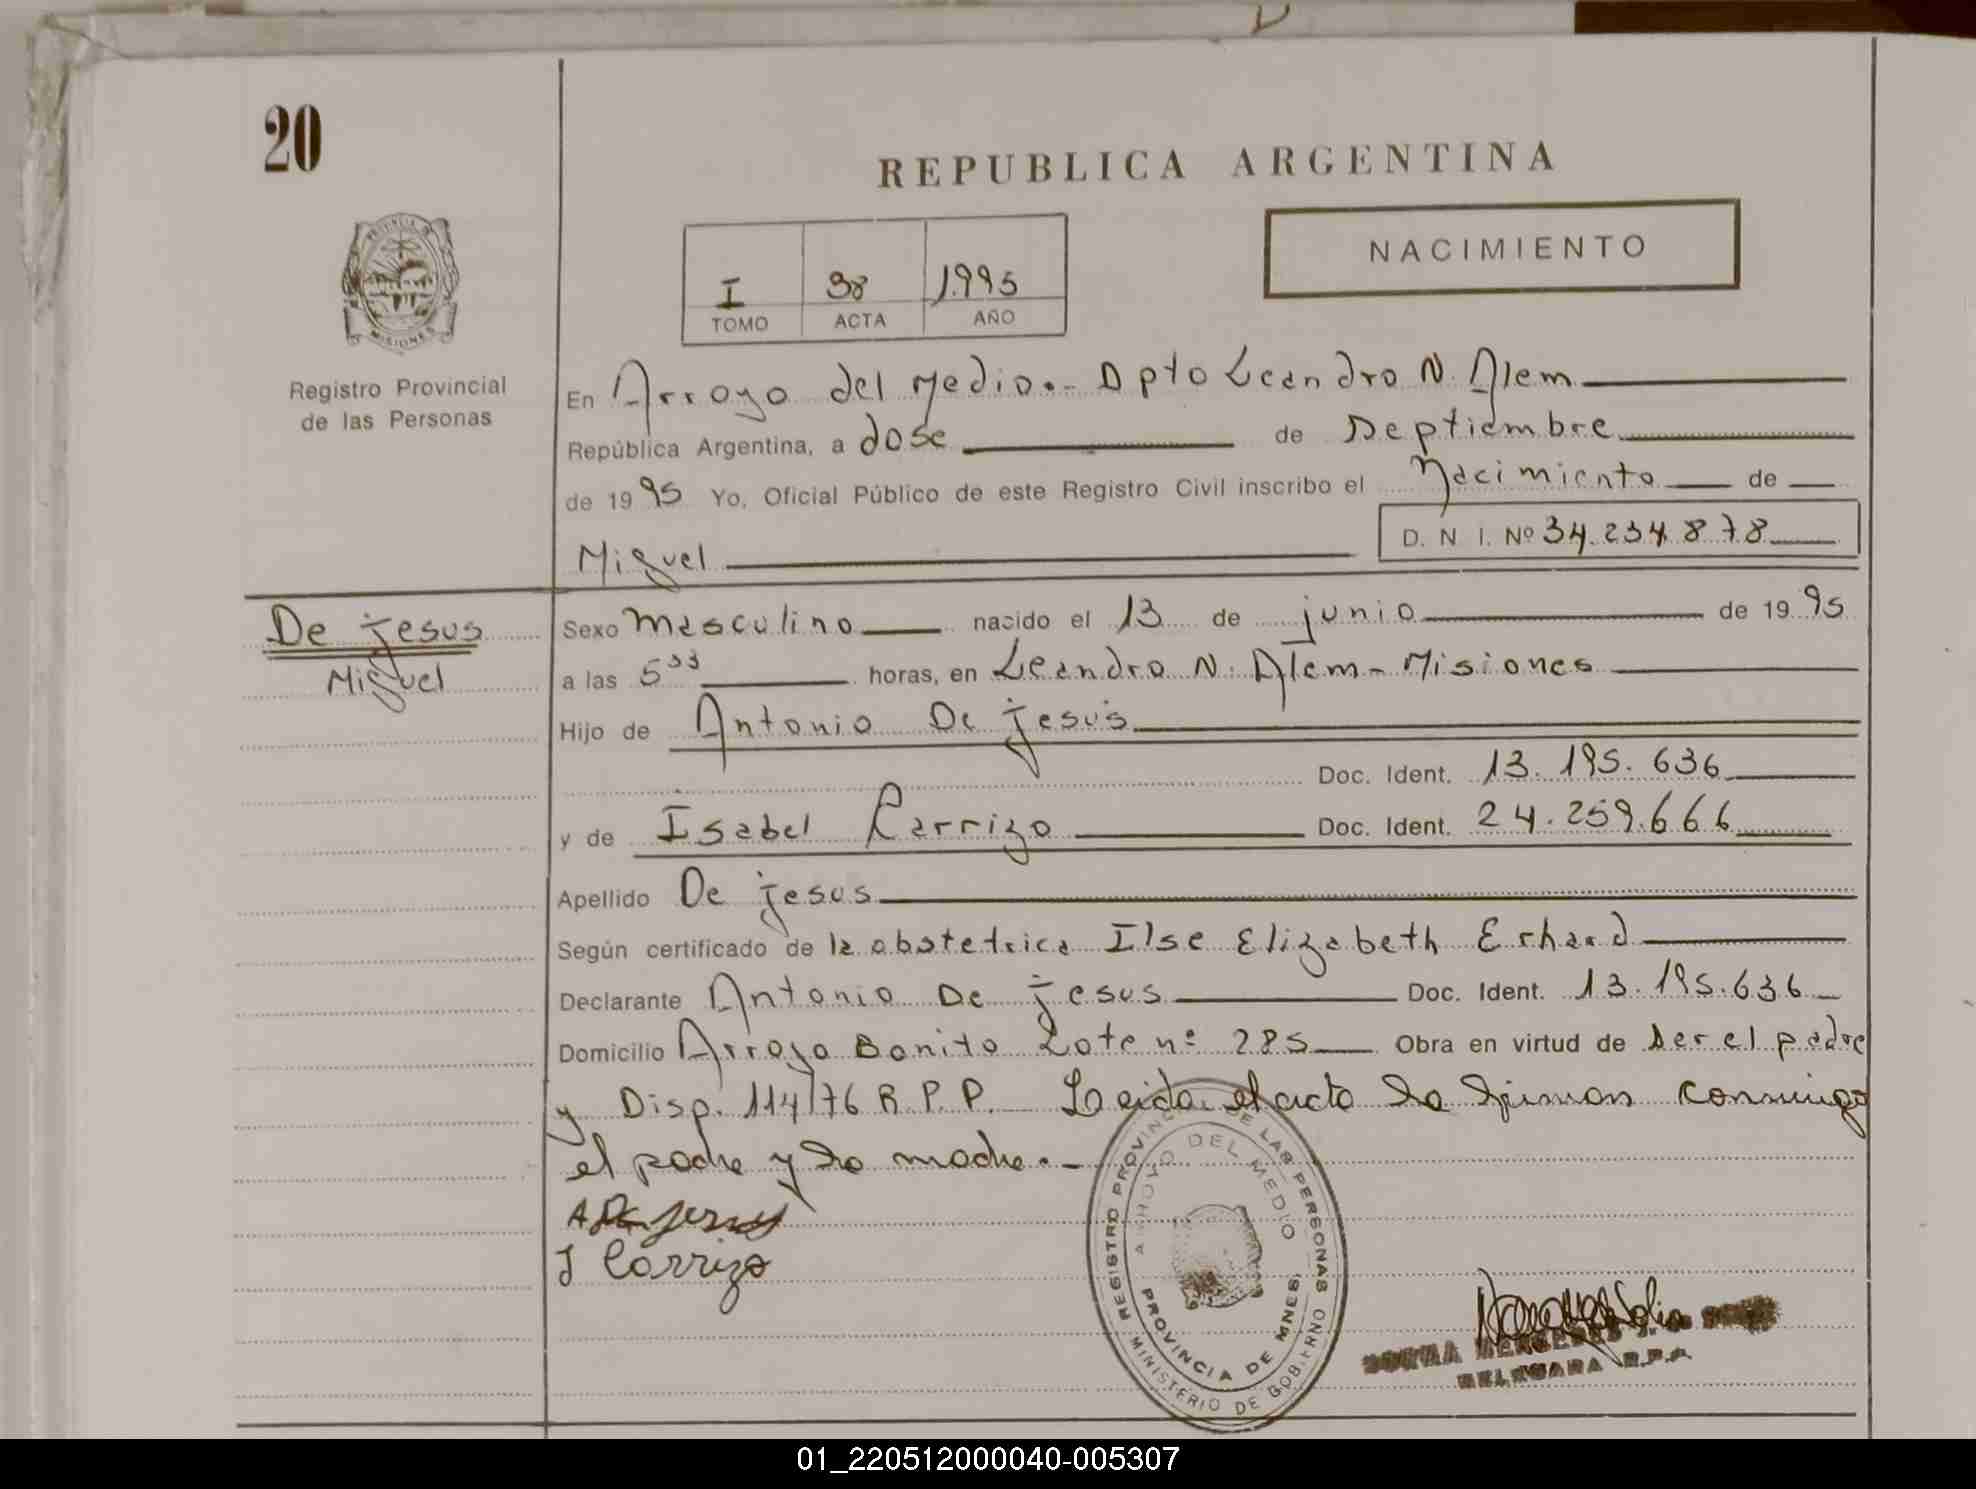 20
REPUBLICA ARGENTINA
PROVINCIA DE MISIONES
Registro Provincial
de las Personas
I 38 1.995
TOMO ACTA AÑO
NACIMIENTO
En Arroyo del Medio.- Dpto Leandro N. Alem
República Argentina, a dose de Septiembre
de 1995 Yo, Oficial Público de este Registro Civil inscribo el Nacimiento de
D. N I. Nº 34.234.878
Miguel
De jesus
Miguel
Sexo Masculino nacido el 13 de junio de 1995
a las 5³³ horas, en Leandro N. Alem - Misiones
Hijo de Antonio De jesus
Doc. Ident. 13.195.636
y de Isabel Carrizo Doc. Ident. 24.259.666
Apellido De jesus
Según certificado de la obstetrica Ilse Elizabeth Erhard
Declarante Antonio De jesus Doc. Ident. 13.195.636
Domicilio Arroyo Bonito Lote nº 285 Obra en virtud de ser el padre
y Disp. 114/76 R.P.P. Leida el acta la firman conmigo
el padre y la madre.-
A De jesus
I Carrizo
REGISTRO PROVINCIAL DE LAS PERSONAS
MINISTERIO DE GOBIERNO
ARROYO DEL MEDIO
PROVINCIA DE MNES.
R.P.P.
01_220512000040-005307